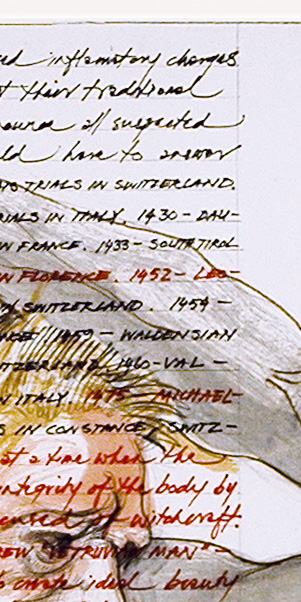 ed inflamatory charges
t their traditional
oned all suspected
ld have to answer
TRIALS IN SWITZERLAND.
RIALS IN ITALY, 1430 - DAU-
N FRANCE. 1433 - SOUTH TIROL
N FLORENCE. 1452 - LEO-
N SWITZERLAND. 1454 -
1459 - WALDENSIAN
TZERLAND, 1460 - VAL -
N ITALY. 1475 - MICHAEL-
S IN CONSTANCE, SWITZ-
at a time when the
integrity of the body by
cused of witchcraft.
REW "VETRUVIAN MAN" -
to create ideal beauty